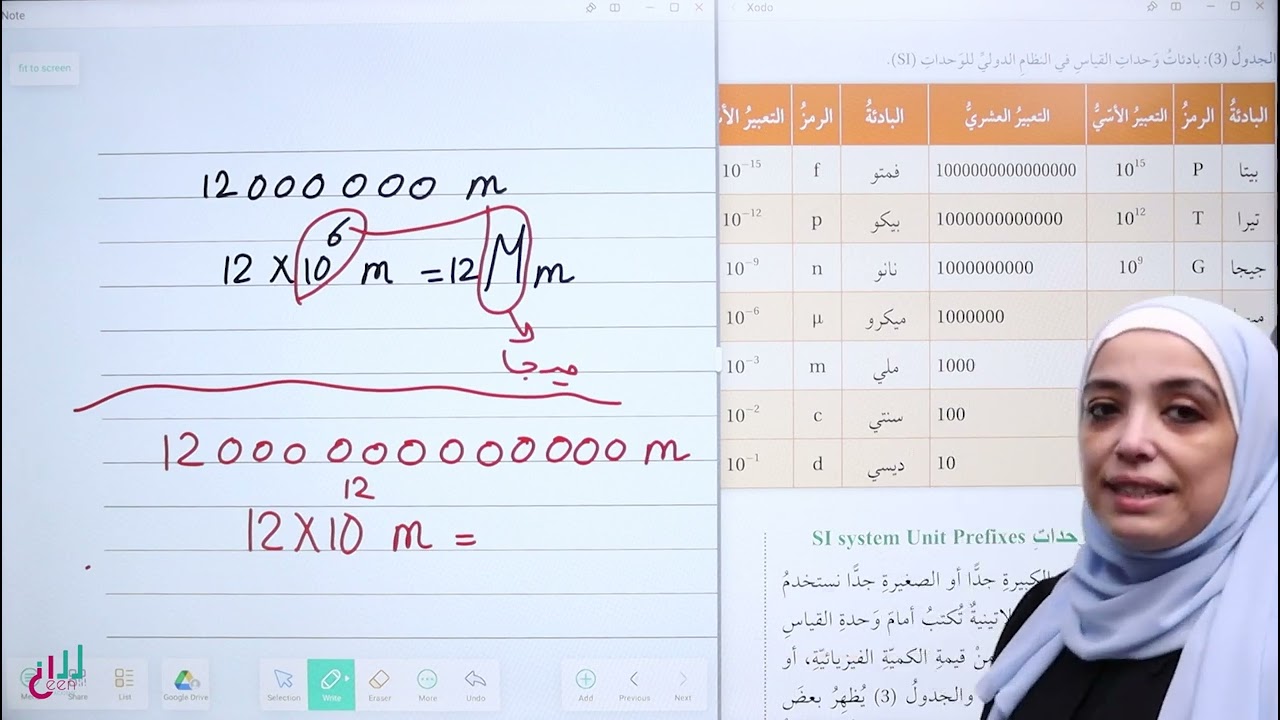 Note
Xodo
fit to screen
12 000 000 m
12 × 10⁶ m = 12 M m
ميجا
12 000 000 000 000 m
12 × 10¹² m =
الجدولُ (3): بادئاتُ وَحداتِ القياسِ في النظامِ الدوليِّ للوَحداتِ (SI).
البادئةُ الرمزُ التعبيرُ الأسّيُّ التعبيرُ العشريُّ البادئةُ الرمزُ التعبيرُ
بيتا P 10¹⁵ 1000000000000000 فمتو f 10⁻¹⁵
تيرا T 10¹² 1000000000000 بيكو p 10⁻¹²
جيجا G 10⁹ 1000000000 نانو n 10⁻⁹
1000000 ميكرو µ 10⁻⁶
1000 ملي m 10⁻³
100 سنتي c 10⁻²
10 ديسي d 10⁻¹
SI system Unit Prefixes
الكبيرةِ جدًّا أو الصغيرةِ جدًّا نستخدمُ
تُكتبُ أمامَ وَحدةِ القياسِ
منْ قيمةِ الكميّةِ الفيزيائيّةِ، أو
والجدولُ (3) يُظهِرُ بعضَ
Share
List
Google Drive
Selection
Write
Eraser
More
Undo
Add
Previous
Next